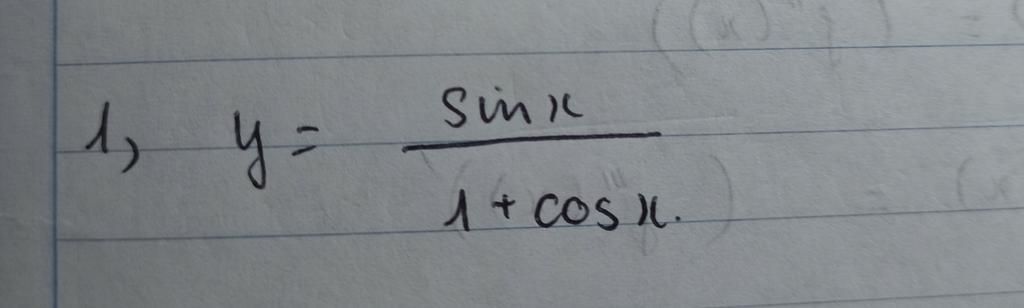 1, y = sin x / 1 + cos x.